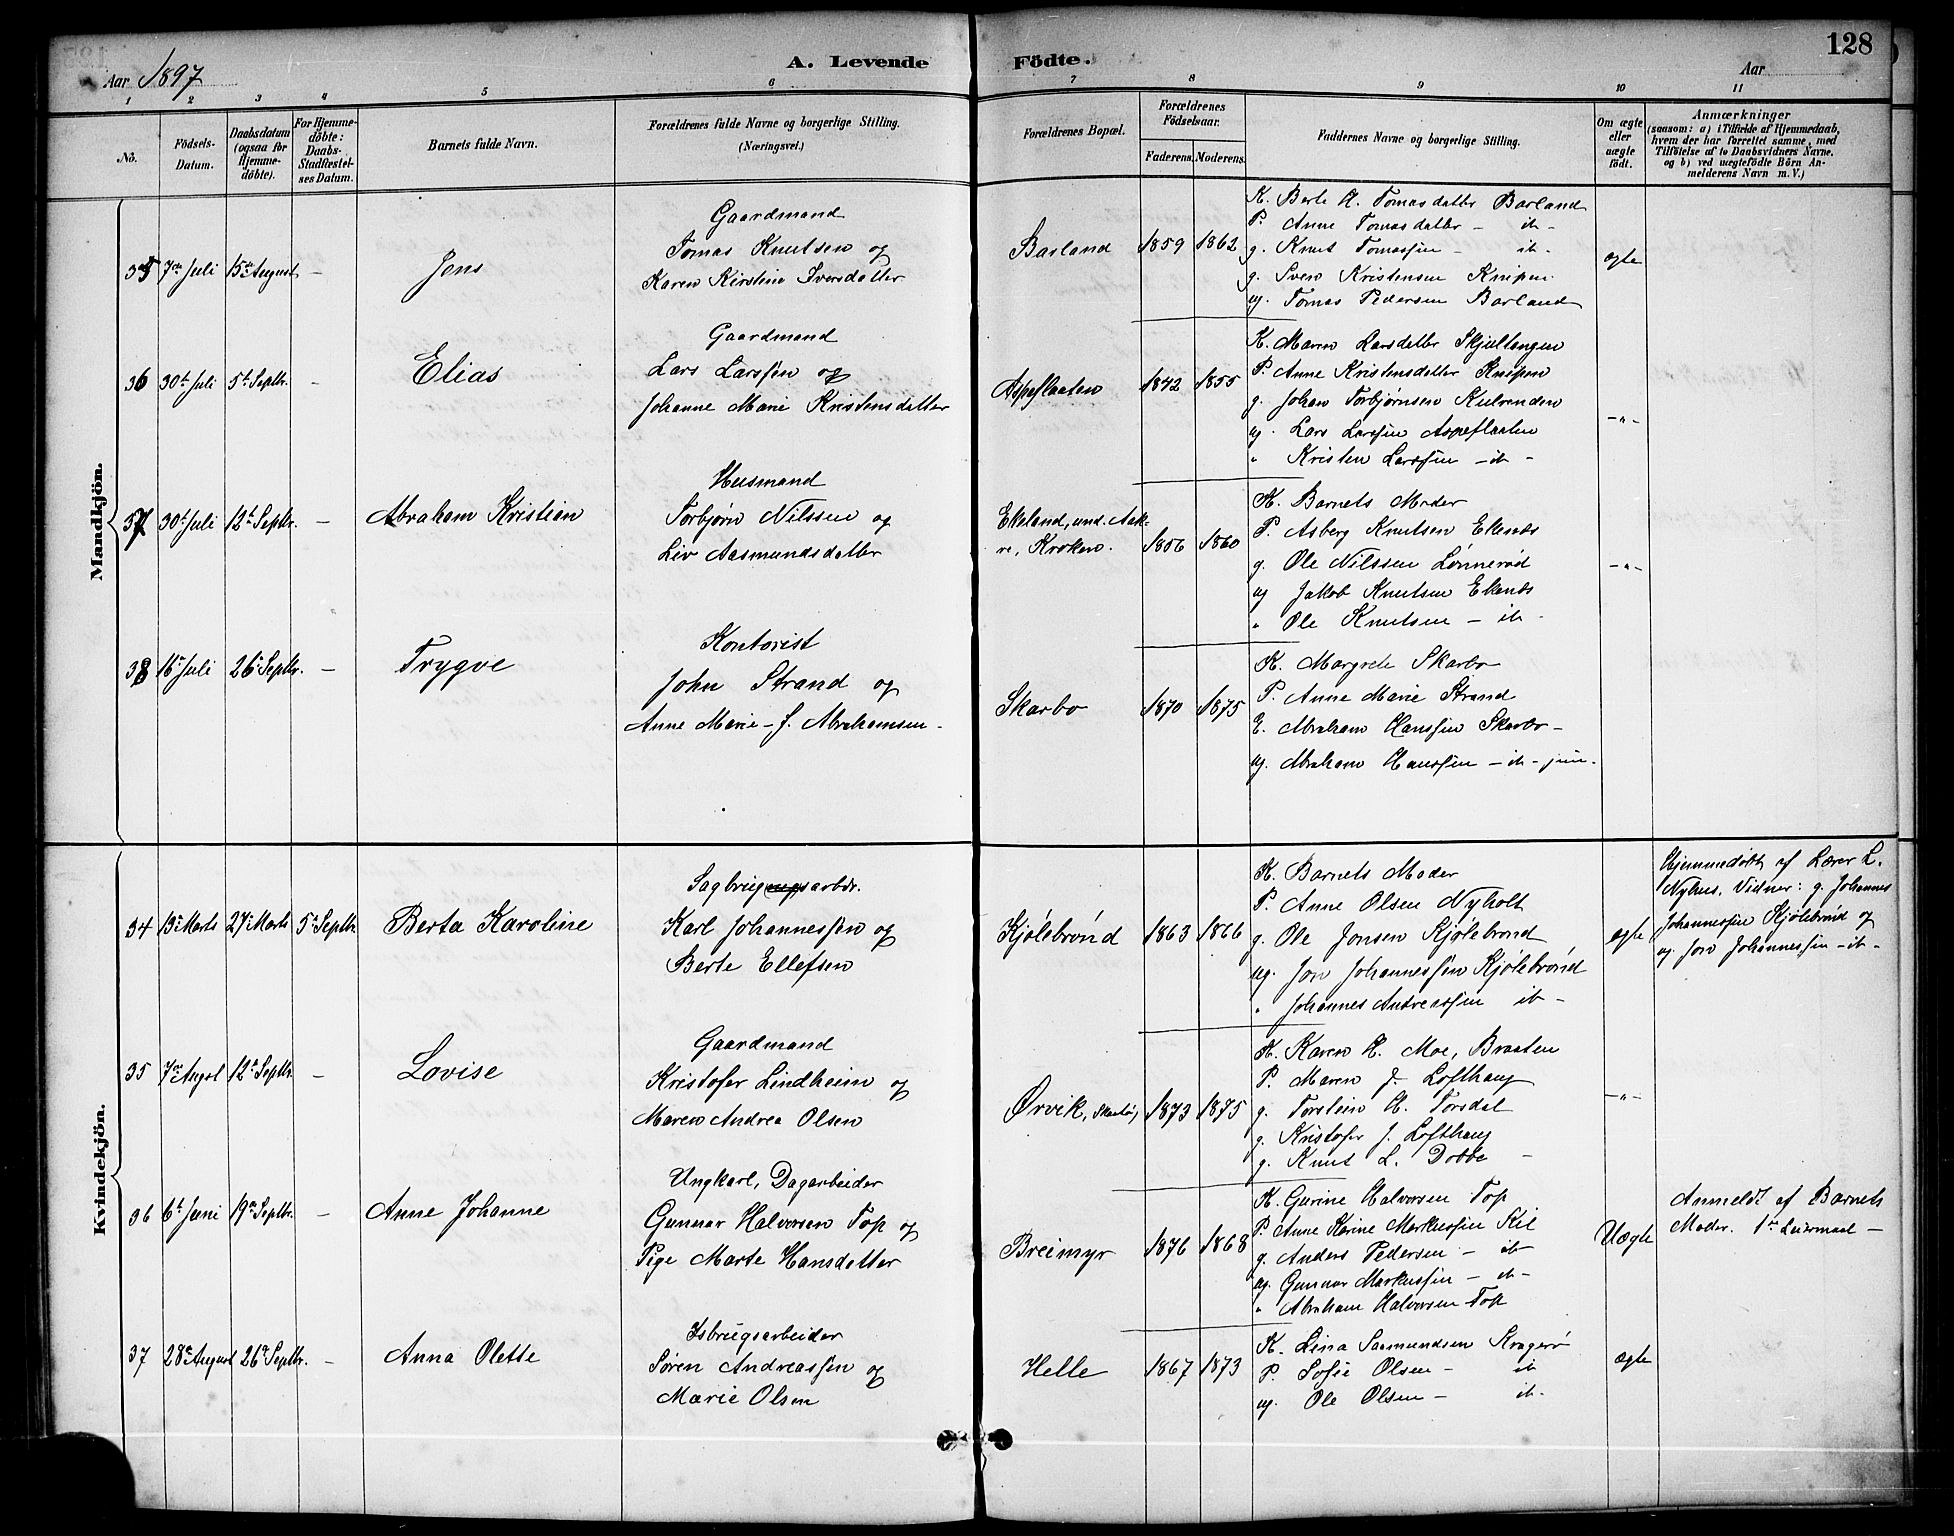 128
Aar 1897
A. Levende
Födte.
Aar
1 2 3 4 5 6 7 8 9 10 11
No.
Födsels-
Datum.
Daabsdatum
(ogsaa for
Hjemme-
döbte).
For Hjemme-
döbte:
Daabs-
Stadfæstel-
ses Datum.
Barnets fulde Navn.
Forældrenes fulde Navne og borgerlige Stilling.
(Næringsvei.)
Forældrenes Bopæl.
Forældrenes
Födselsaar.
Faderens. Moderens.
Faddernes Navne og borgerlige Stilling.
Om ægte
eller
uægte
født.
Anmærkninger
(saasom: a) i Tilfælde af Hjemmedaab,
hvem der har forrettet samme, med
Tilföielse af to Daabsvidners Navne.
og b) ved uægtefödte Börn An-
melderens Navn m. V.)
Mandkjön.
35 7de Juli 15de August – Jens
Gaardmand
Tomas Knutsen og
Karen Kirstine Iversdatter
Barland 1859 1862
K. Berte A. Tomasdatter Barland
P. Anne Tomasdatter – ib –
g. Knut Tomassen – ib –
g. Sven Kristensen Knipen
ug. Tomas Pedersen Barland
ægte
36 30te Juli 5te Septbr. – Elias
Gaardmand
Lars Larssen og
Johanne Marie Kristensdatter
Aspeflaaten 1842 1855
K. Maren Larsdatter Skjultangen
P. Anne Kristensdatter Knipen
g. Johan Torbjørnsen Kulrenden
ug. Lars Larssen Aspeflaaten
" Kristen Larssen – ib –
– " –
37 30te Juli 12te Septbr. – Abraham Kristian
Husmand
Torbjørn Nilssen og
Liv Aasmundsdatter
Ekeland, und. Aak-
re, Kroken. 1856 1860
K. Barnets Moder
P. Asberg Knutsen Ekenæs
g. Ole Nilssen Lønnerød
ug Jakob Knutsen Ekenæs
" Ole Knutsen – ib –
– " –
38 16de Juli 26de Septbr. – Trygve
Kontorist
John Strand og
Anne Marie – J. Abrahamsen –
Skarbo 1870 1875
K. Margrete Skarbo
P. Anne Marie Strand
E. Abraham Hanssen Skarbo –
ug. Abraham Hanssen – ib – jun.
Kvindekjön.
34 13de Marts 27de Marts 5te Septbr. Berta Karoline
Sagbrugsarbdr.
Karl Johannessen og
Berte Ellefsen
Kjølebrønd 1863 1866
K. Barnets Moder
P. Anne Olsen Nyholt
g. Ole Jonsen Kjølebrønd
ug. Jon Johannessen Kjølebrønd
" Johannes Andreassen ib –
ægte
Hjemmedøbt af Lærer L.
Nyhus. Vidner: g. Johannes
Johannessen Kjølebrønd og
ug. Jon Johannessen – ib –
35 7de Augst 12te Septbr. – Lovise
Gaardmand
Kristofer Lindheim og
Maren Andrea Olsen
Ørvik, Skaatø, 1873 1875
K. Karen H. Moe, Braaten
P. Maren J. Lofthaug
g. Torstein H. Torsdal
g. Kristofer J. Lofthaug
g. Knut L. Dobbe –
– " –
36 6te Juni 19de Septbr. – Anne Johanne
Ungkarl, Dagarbeider
Gunnar Halvorsen Top og
Pige Marte Hansdatter
Breimyr 1876 1868
K. Gurine Halvorsen Top
P. Anne Karine Markussen Kil
g. Anders Pedersen – ib –
ug. Gunnar Markussen – ib –
" Abraham Halvorsen Top
Uægte
Anmeldt af Barnets
Moder. 1ste Leiermaal –
37 28de August 26de Septbr. – Anna Olette
Isbrugsarbeider
Søren Andreassen og
Marie Olsen
Helle 1867 1873
K. Lina Saamundsen Kragerø
P. Sofie Olsen – ib
ug. Ole Olsen – ib –
ægte